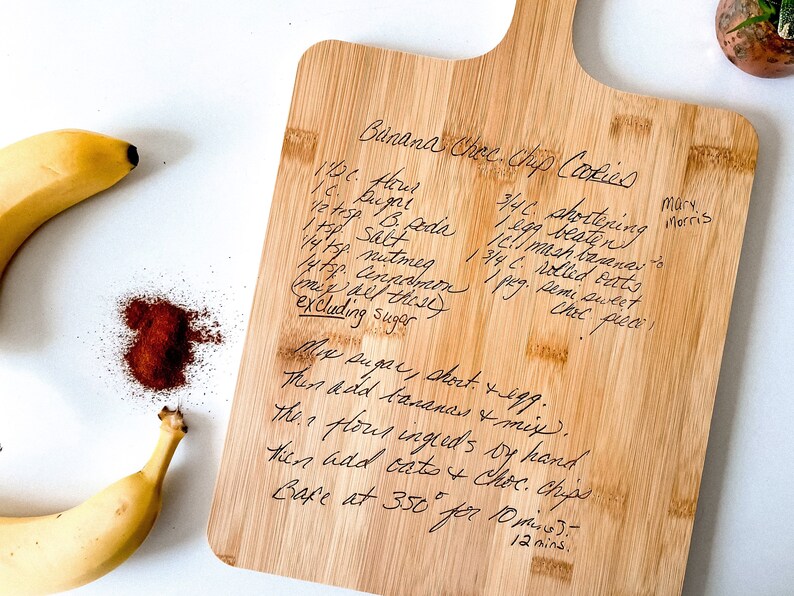 Banana Choc. Chip Cookies
Mary
Morris
1 1/2 c. flour
1 c. sugar
1/2 tsp. B. soda
1 tsp. salt
1/4 tsp nutmeg
1/4 tsp. cinnamon
(mix all these)
excluding sugar
3/4 c. shortening
1 egg beaten
1 c. mash bananas
1 3/4 c. rolled oats
1 pkg. semi sweet
choc pieces
Mix sugar, short. & egg.
Then add bananas & mix.
Then flour ingreds by hand
then add oats & choc. chips
Bake at 350° for 10 mins
12 mins.